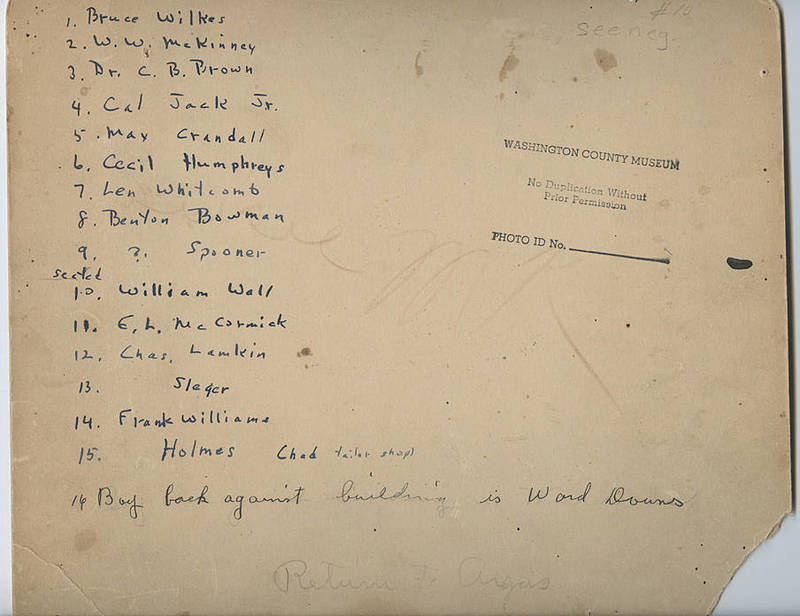 #10
see neg.
1. Bruce Wilkes
2. W. W. McKinney
3. Dr. C. B. Brown
4. Cal Jack Jr.
5. Max Crandall
6. Cecil Humphreys
7. Len Whitcomb
8. Benton Bowman
9. ? Spooner
seated
10. William Wall
11. E. L. McCormick
12. Chas. Lamkin
13. Sleger
14. Frank Williams
15. Holmes (had tailor shop)
16 Boy back against building is Ward Downs
WASHINGTON COUNTY MUSEUM
No Duplication Without
Prior Permission
PHOTO ID No.
Return to Argus